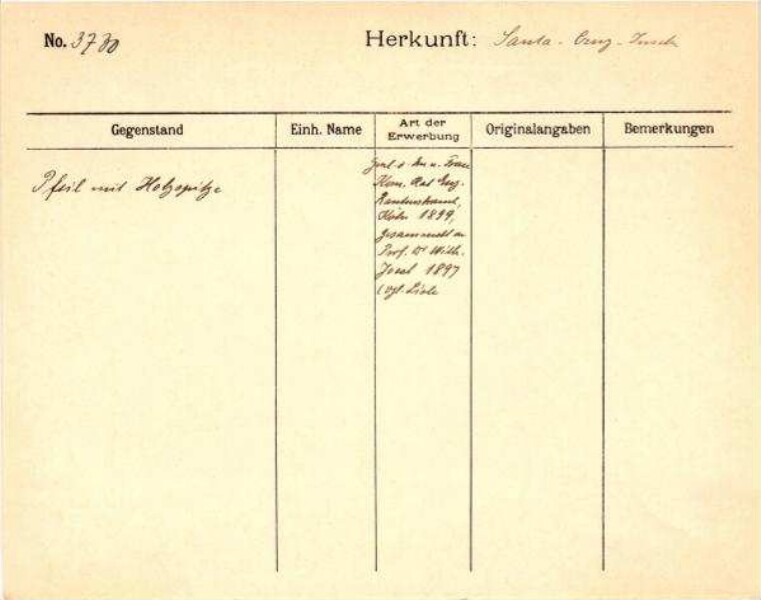 No. 3730
Herkunft: Santa-Cruz-Inseln
Gegenstand
Einh. Name
Art der Erwerbung
Originalangaben
Bemerkungen
Pfeil mit Holzspitze
Frau
Kom. Rat Eug.
Rautenstrauch,
Köln 1899,
gesammelt v.
Prof. Dr Wilh.
Joest 1897
(vgl. Liste